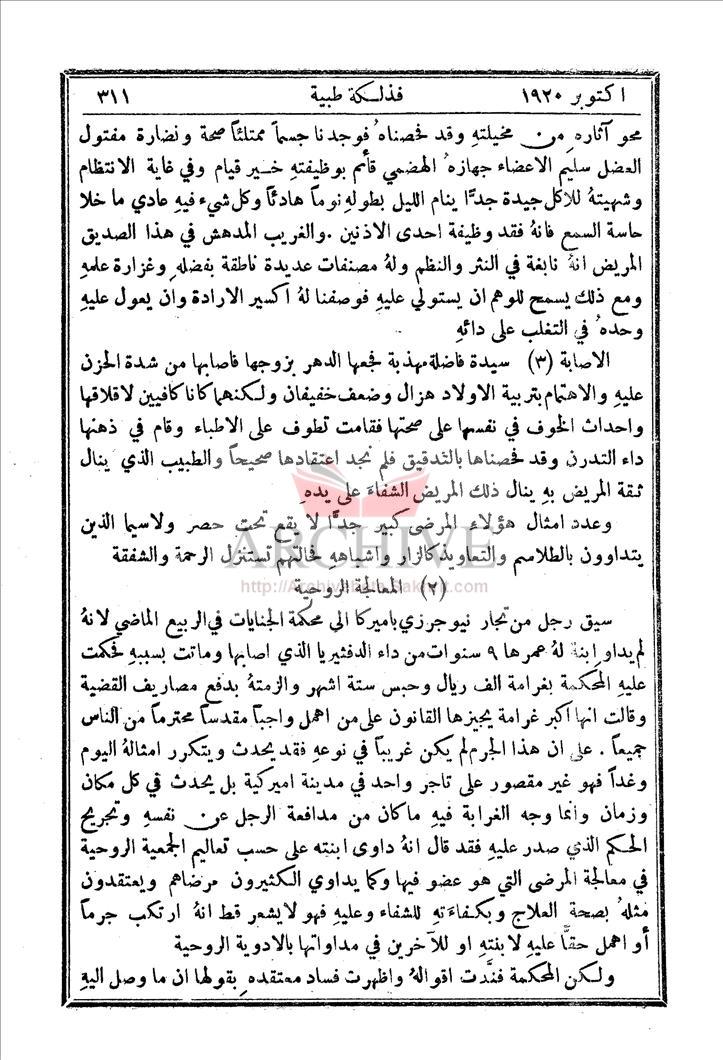 اكتوبر ١٩٢٠ فذلكة طبية ٣١١
محو آثاره من مخيلتهِ وقد فحصناهُ فوجدنا جسماً ممتلئاً صحة ونضارة مفتول
العضل سليم الاعضاء جهازهُ الهضمي قائم بوظيفتهِ خير قيام وفي غاية الانتظام
وشهيتهُ للاكل جيدة جدًّا ينام الليل بطولهِ نوماً هادئاً وكل شيء فيهِ عادي ما خلا
حاسة السمع فانهُ فقد وظيفة احدى الاذنين . والغريب المدهش في هذا الصديق
المريض انهُ نابغة في النثر والنظم ولهُ مصنفات عديدة ناطقة بفضلهِ وغزارة علمهِ
ومع ذلك يسمح للوهم ان يستولي عليهِ فوصفنا لهُ اكسير الارادة وان يعول عليهِ
وحدهُ في التغلب على دائهِ
الاصابة (٣) سيدة فاضلة مهذبة فجعها الدهر بزوجها فاصابها من شدة الحزن
عليهِ والاهتمام بتربية الاولاد هزال وضعف خفيفان ولكنهما كانا كافيين لاقلاقها
واحداث الخوف في نفسها على صحتها فقامت تطوف على الاطباء وقام في ذهنها
داء التدرن وقد فحصناها بالتدقيق فلم نجد اعتقادها صحيحاً والطبيب الذي ينال
ثقة المريض بهِ ينال ذلك المريض الشفاءَ على يدهِ
وعدد امثال هؤلاءِ المرضى كبير جدًّا لا يقع تحت حصر ولاسيما الذين
يتداوون بالطلاسم والتعاويذ كالزار واشباههِ فحالتهم تستنزل الرحمة والشفقة
ARCHIVE
(٢) المعالجة الروحية
سيق رجل من تجار نيوجرزي باميركا الى محكمة الجنايات في الربيع الماضي لانهُ
لم يداوِ ابنة لهُ عمرها ٩ سنوات من داء الدفثيريا الذي اصابها وماتت بسببهِ فحكمت
عليهِ المحكمة بغرامة الف ريال وحبس ستة اشهر والزمتهُ بدفع مصاريف القضية
وقالت انها اكبر غرامة يجيزها القانون على من اهمل واجباً مقدساً محترماً من الناس
جميعاً . على ان هذا الجرم لم يكن غريباً في نوعهِ فقد يحدث ويتكرر امثالهُ اليوم
وغداً فهو غير مقصور على تاجر واحد في مدينة اميركية بل يحدث في كل مكان
وزمان وانما وجه الغرابة فيهِ ما كان من مدافعة الرجل عن نفسهِ وتجريح
الحكم الذي صدر عليهِ فقد قال انهُ داوى ابنته على حسب تعاليم الجمعية الروحية
في معالجة المرضى التي هو عضو فيها وكما يداوي الكثيرون مرضاهم ويعتقدون
مثلهُ بصحة العلاج وبكفاءَتهِ للشفاء وعليهِ فهو لا يشعر قط انهُ ارتكب جرماً
أو اهمل حقًّا عليهِ لابنتهِ او للآخرين في مداواتها بالادوية الروحية
ولكن المحكمة فنَّدت اقوالهُ واظهرت فساد معتقدهِ بقولها ان ما وصل اليهِ